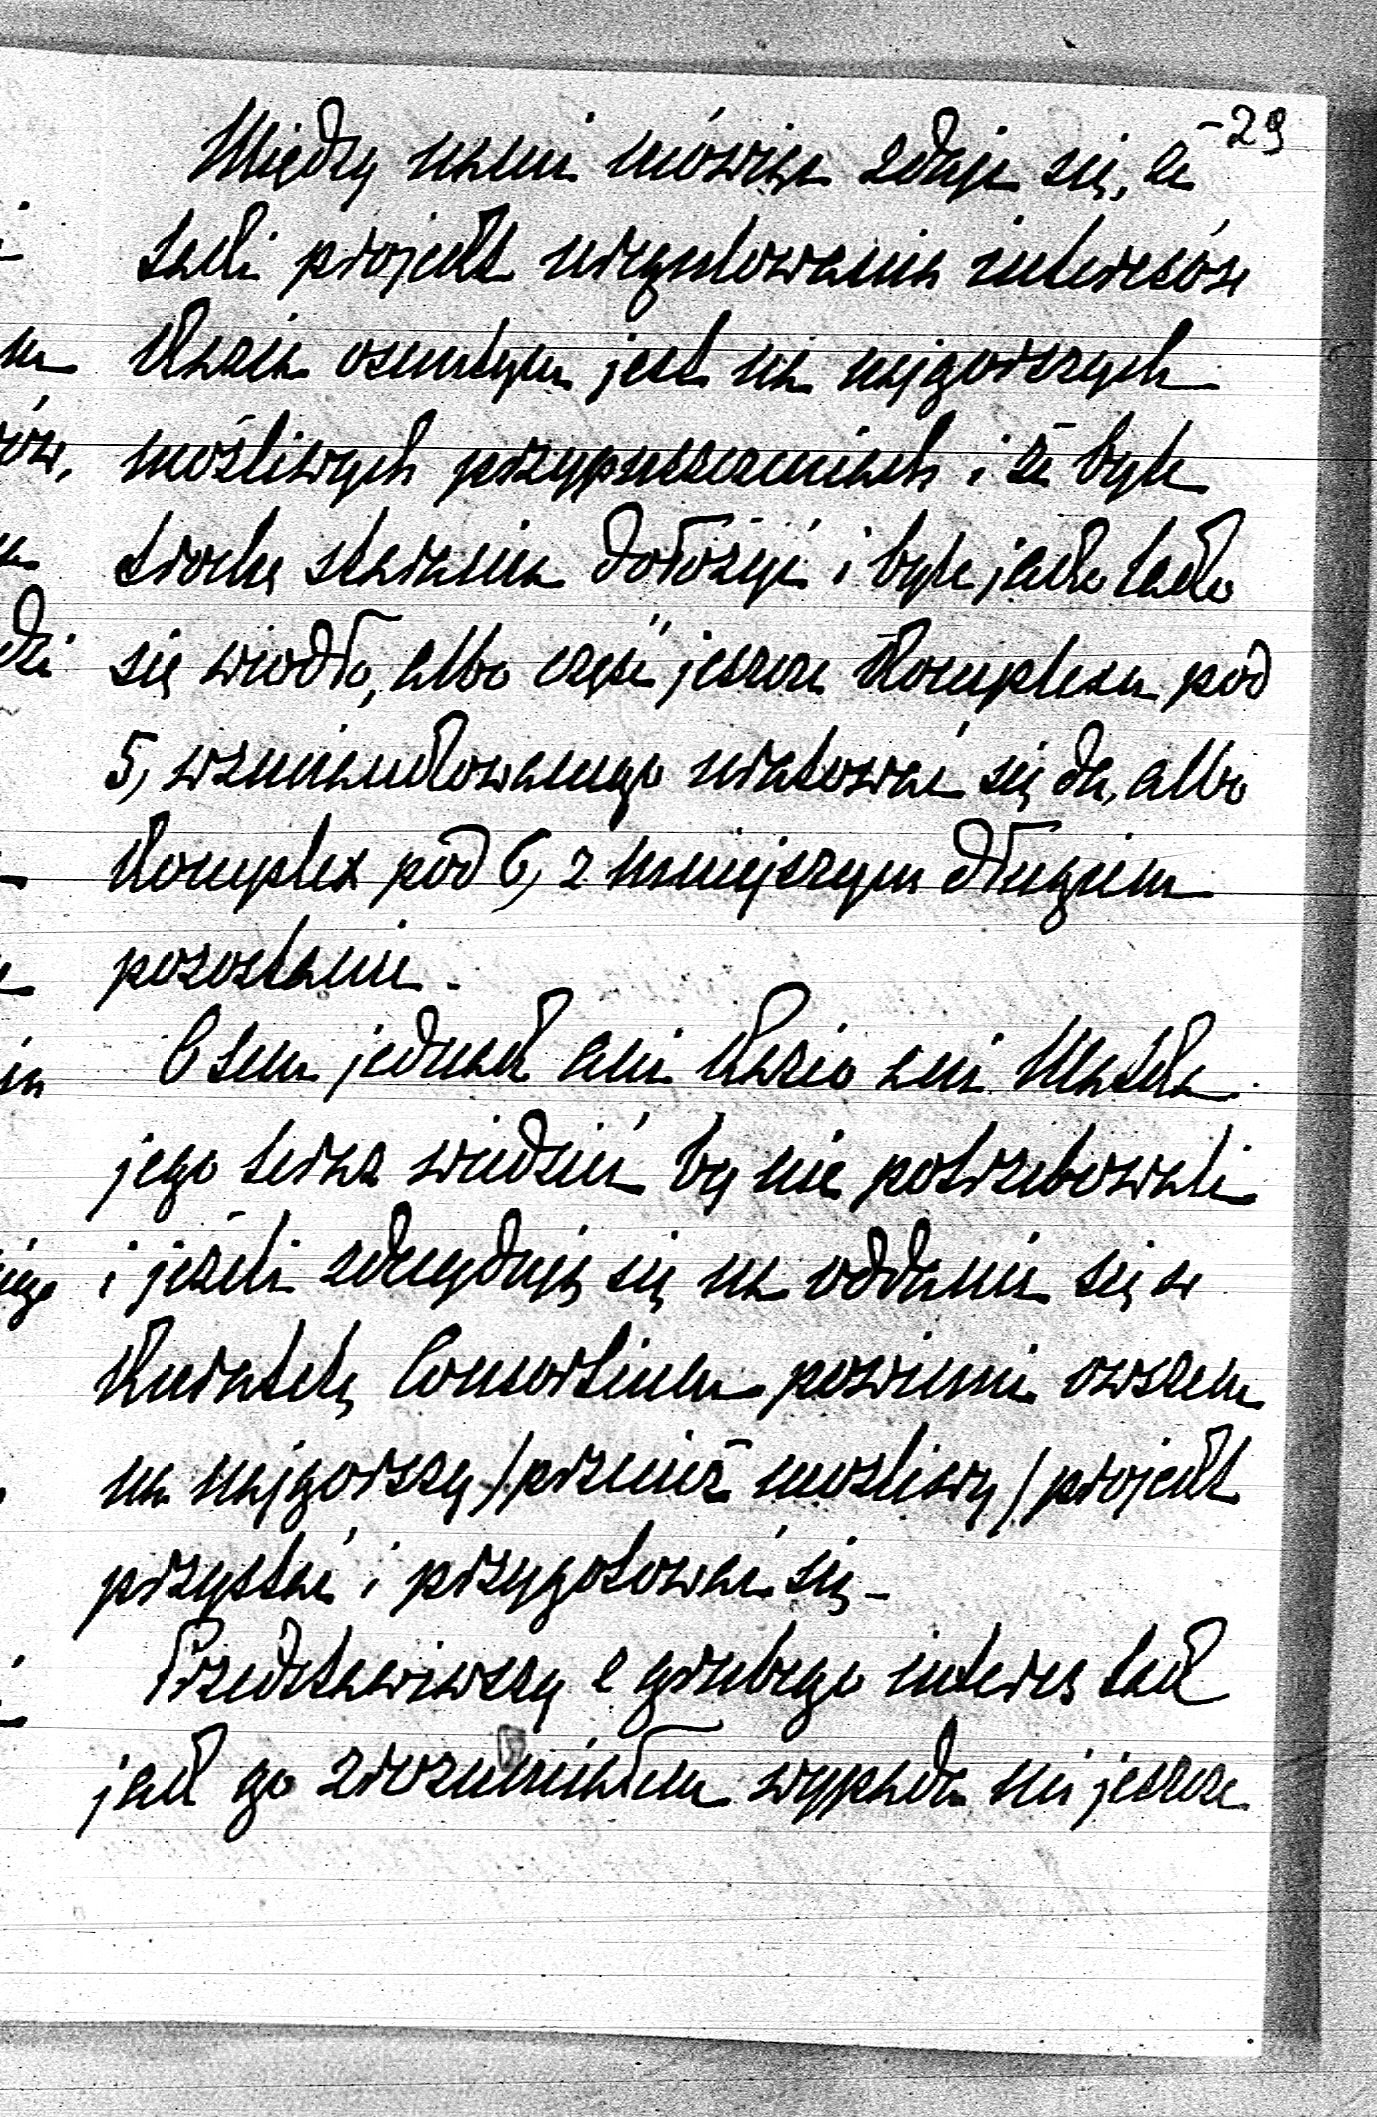 -29
Między nami mówiąc zdaje się, że
taki projekt uregulowania interesów
Kazia osnutym jest na najgorszych
możliwych przypuszczeniach i że byle
trochę starania dołożyć i byle jako tako
się wiodło, albo część jeszcze Komplexu pod
5, wzmiankowanego uratować się da, albo
Komplex pod 6, z mniejszym długiem
pozostanie.
O tem jednak ani Kazio ani Matka
jego teraz wiedzieć by nie potrzebowali
i jeżeli zdecydują się na oddanie się w
Kuratelę Consortium powinni owszem
na najgorszy /przecież możliwy/ projekt
przystać i przygotować się -
Przedstawiwszy z grubego interes tak
jak go zrozumiałem wypada mi jeszcze